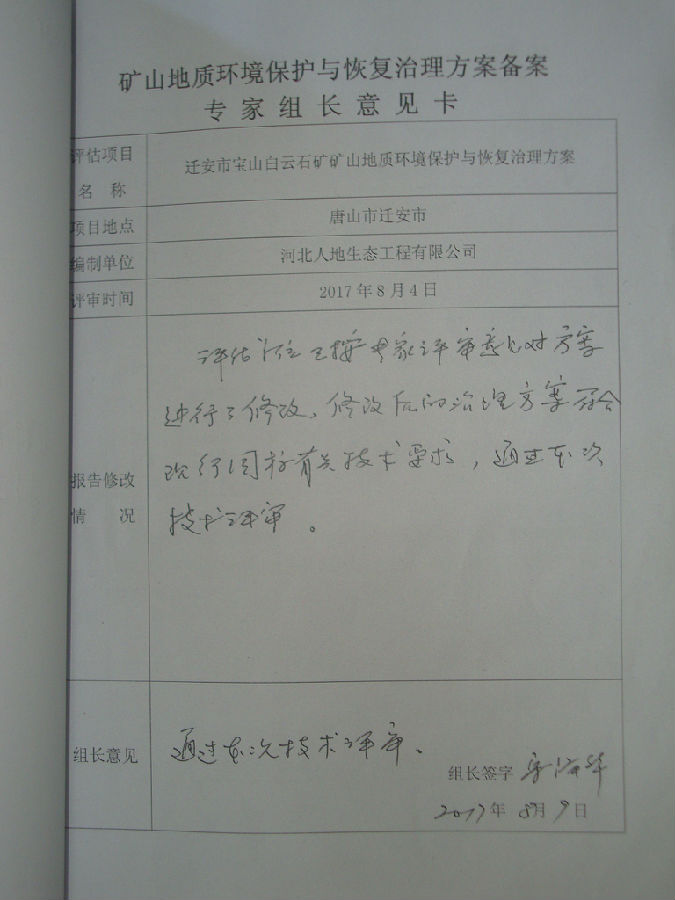 矿山地质环境保护与恢复治理方案备案
专家组长意见卡
评估项目
名 称
迁安市宝山白云石矿矿山地质环境保护与恢复治理方案
项目地点
唐山市迁安市
编制单位
河北人地生态工程有限公司
评审时间
2017年8月4日
评估单位已按专家评审意见对方案
进行了修改、修改后的治理方案符合
现行国标有关技术要求，通过本次
技术评审。
报告修改
情 况
组长意见
通过本次技术评审.
组长签字
2017年8月9日